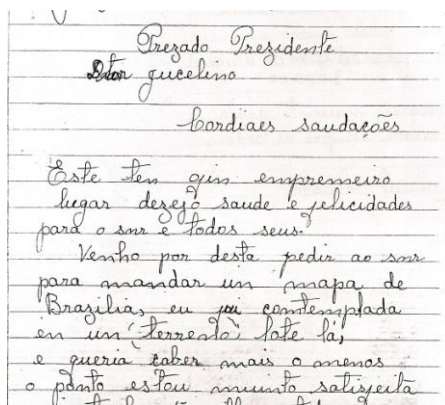 Prezado Prezidente
Dtor Jucelino
Cordiaes saudações
Este ten qin empremeiro
lugar dezejo saude e felicidades
para o snr e todos seus.
Venho por desta pedir ao snr
para mandar un mapa de
Brazilia, eu fui comtemplada
en un terreno lote lá,
e queria saber mais o menos
o ponto estou muinto satisfeita